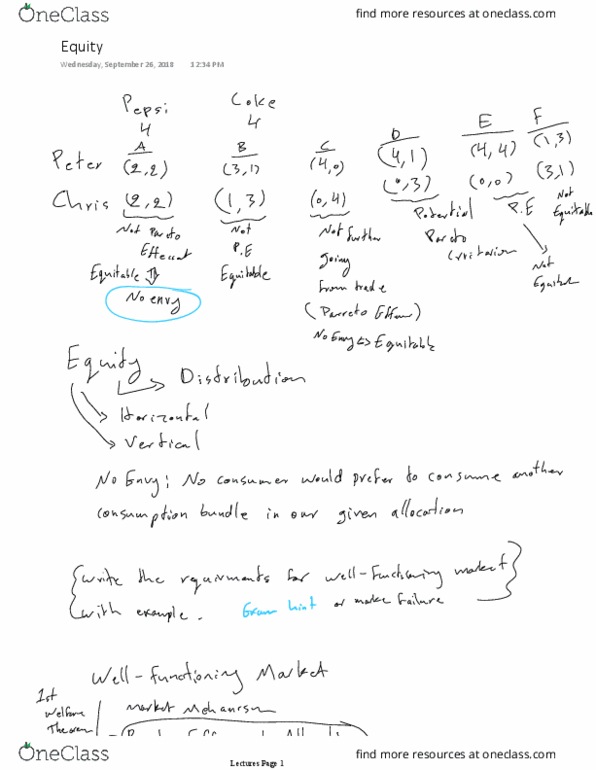 OneClass find more resources at oneclass.com
Equity
Wednesday, September 26, 2018 12:34 PM
Pepsi Coke
4 4
A B C D E F
Peter (2,2) (3,1) (4,0) (4,1) (4,4) (1,3)
Chris (2,2) (1,3) (0,4) (0,3) (0,0) (3,1)
Not Pareto Not Not further Potential P.E Not
Efficient P.E going Pareto Equitable
Equitable Equitable from trade Criterion Not
No envy (Parreto Effien)
No Envy Equitable
Equity
Distribution
Horizontal
Vertical
No Envy; No consumer would prefer to consume another
consumption bundle in our given allocation
{write the requirments for well-functioning market}
with example. Exam hint or make failure
Well-functioning Market
1st
Welfare
Theorem
Market Mehanism
OneClass find more resources at oneclass.com
Lectures Page 1